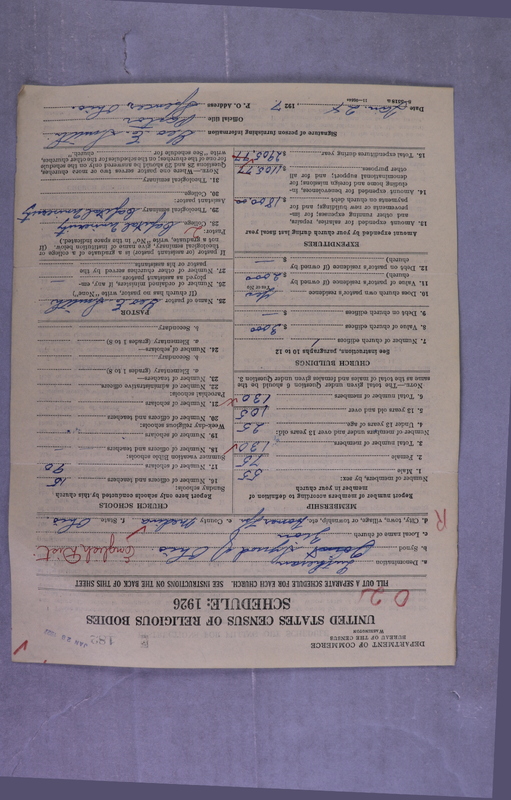 DEPARTMENT OF COMMERCE
BUREAU OF THE CENSUS
WASHINGTON
JAN 26
UNITED STATES CENSUS OF RELIGIOUS BODIES
SCHEDULE: 1926
FILL OUT A SEPARATE SCHEDULE FOR EACH CHURCH. SEE INSTRUCTIONS ON THE BACK OF THIS SHEET
a. Denomination Lutheran
b. Synod Joint Synod of Ohio. English Dist
c. Local name of church Zion
d. City, town, village, or township, etc. e. County Medina f. State Ohio.
MEMBERSHIP
Report number of members according to definition of member in your church
Number of members, by sex:
1. Male 55
2. Female 75
3. Total number of members 130
Number of members under and over 13 years old:
4. Under 13 years of age 25
5. 13 years old and over 105
6. Total number of members 130
NOTE.—The total given under Question 6 should be the same as the total of males and females given under Question 3.
CHURCH BUILDINGS
See instructions, paragraphs 10 to 12
7. Number of church edifices 1
8. Value of church edifices $ 9000
9. Debt on church edifices $ —
10. Does church own pastor's residence Yes
(Yes or No)
11. Value of pastor's residence (if owned by church) $ 2000
12. Debt on pastor's residence (if owned by church) $ —
EXPENDITURES
Amount expended by your church during last fiscal year
13. Amount expended for salaries, repairs, and other running expenses; for improvements or new buildings; and for payments on church debt $ 1800.00
14. Amount expended for benevolences, including home and foreign missions; for denominational support; and for all other purposes $ 1105.77
15. Total expenditures during year $ 2905.77
CHURCH SCHOOLS
Report here only schools conducted by this church
Sunday schools:
16. Number of officers and teachers 15
17. Number of scholars 90
Summer vacation Bible schools:
18. Number of officers and teachers —
19. Number of scholars
Week-day religious schools:
20. Number of officers and teachers
21. Number of scholars
Parochial schools:
22. Number of administrative officers
23. Number of teachers—
a. Elementary (grades 1 to 8)
b. Secondary
24. Number of scholars—
a. Elementary (grades 1 to 8)
b. Secondary
PASTOR
25. Name of pastor Geo E. Smith
(If church has no pastor, write "None")
26. Number of ordained ministers, if any, employed as assistant pastors —
27. Number of other churches served by the pastor or his assistants
If pastor (or assistant pastor) is a graduate of a college or theological seminary, give name of institution. (If not a graduate, write "No" in the space indicated.)
Pastor:
28. College Capital University
29. Theological seminary Capital University
Assistant pastor:
30. College
31. Theological seminary
NOTE.—Where one pastor serves two or more churches, Questions 28 and 29 should be answered only on the schedule for one of the churches; on the schedules for the other churches, write "See schedule for church."
Signature of person furnishing information Geo E. Smith
Official title Pastor
Date Jan. 24, 1927 P. O. Address Spencer, Ohio.